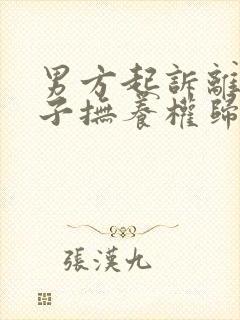 男方起訴離
子撫養權歸
張漢九